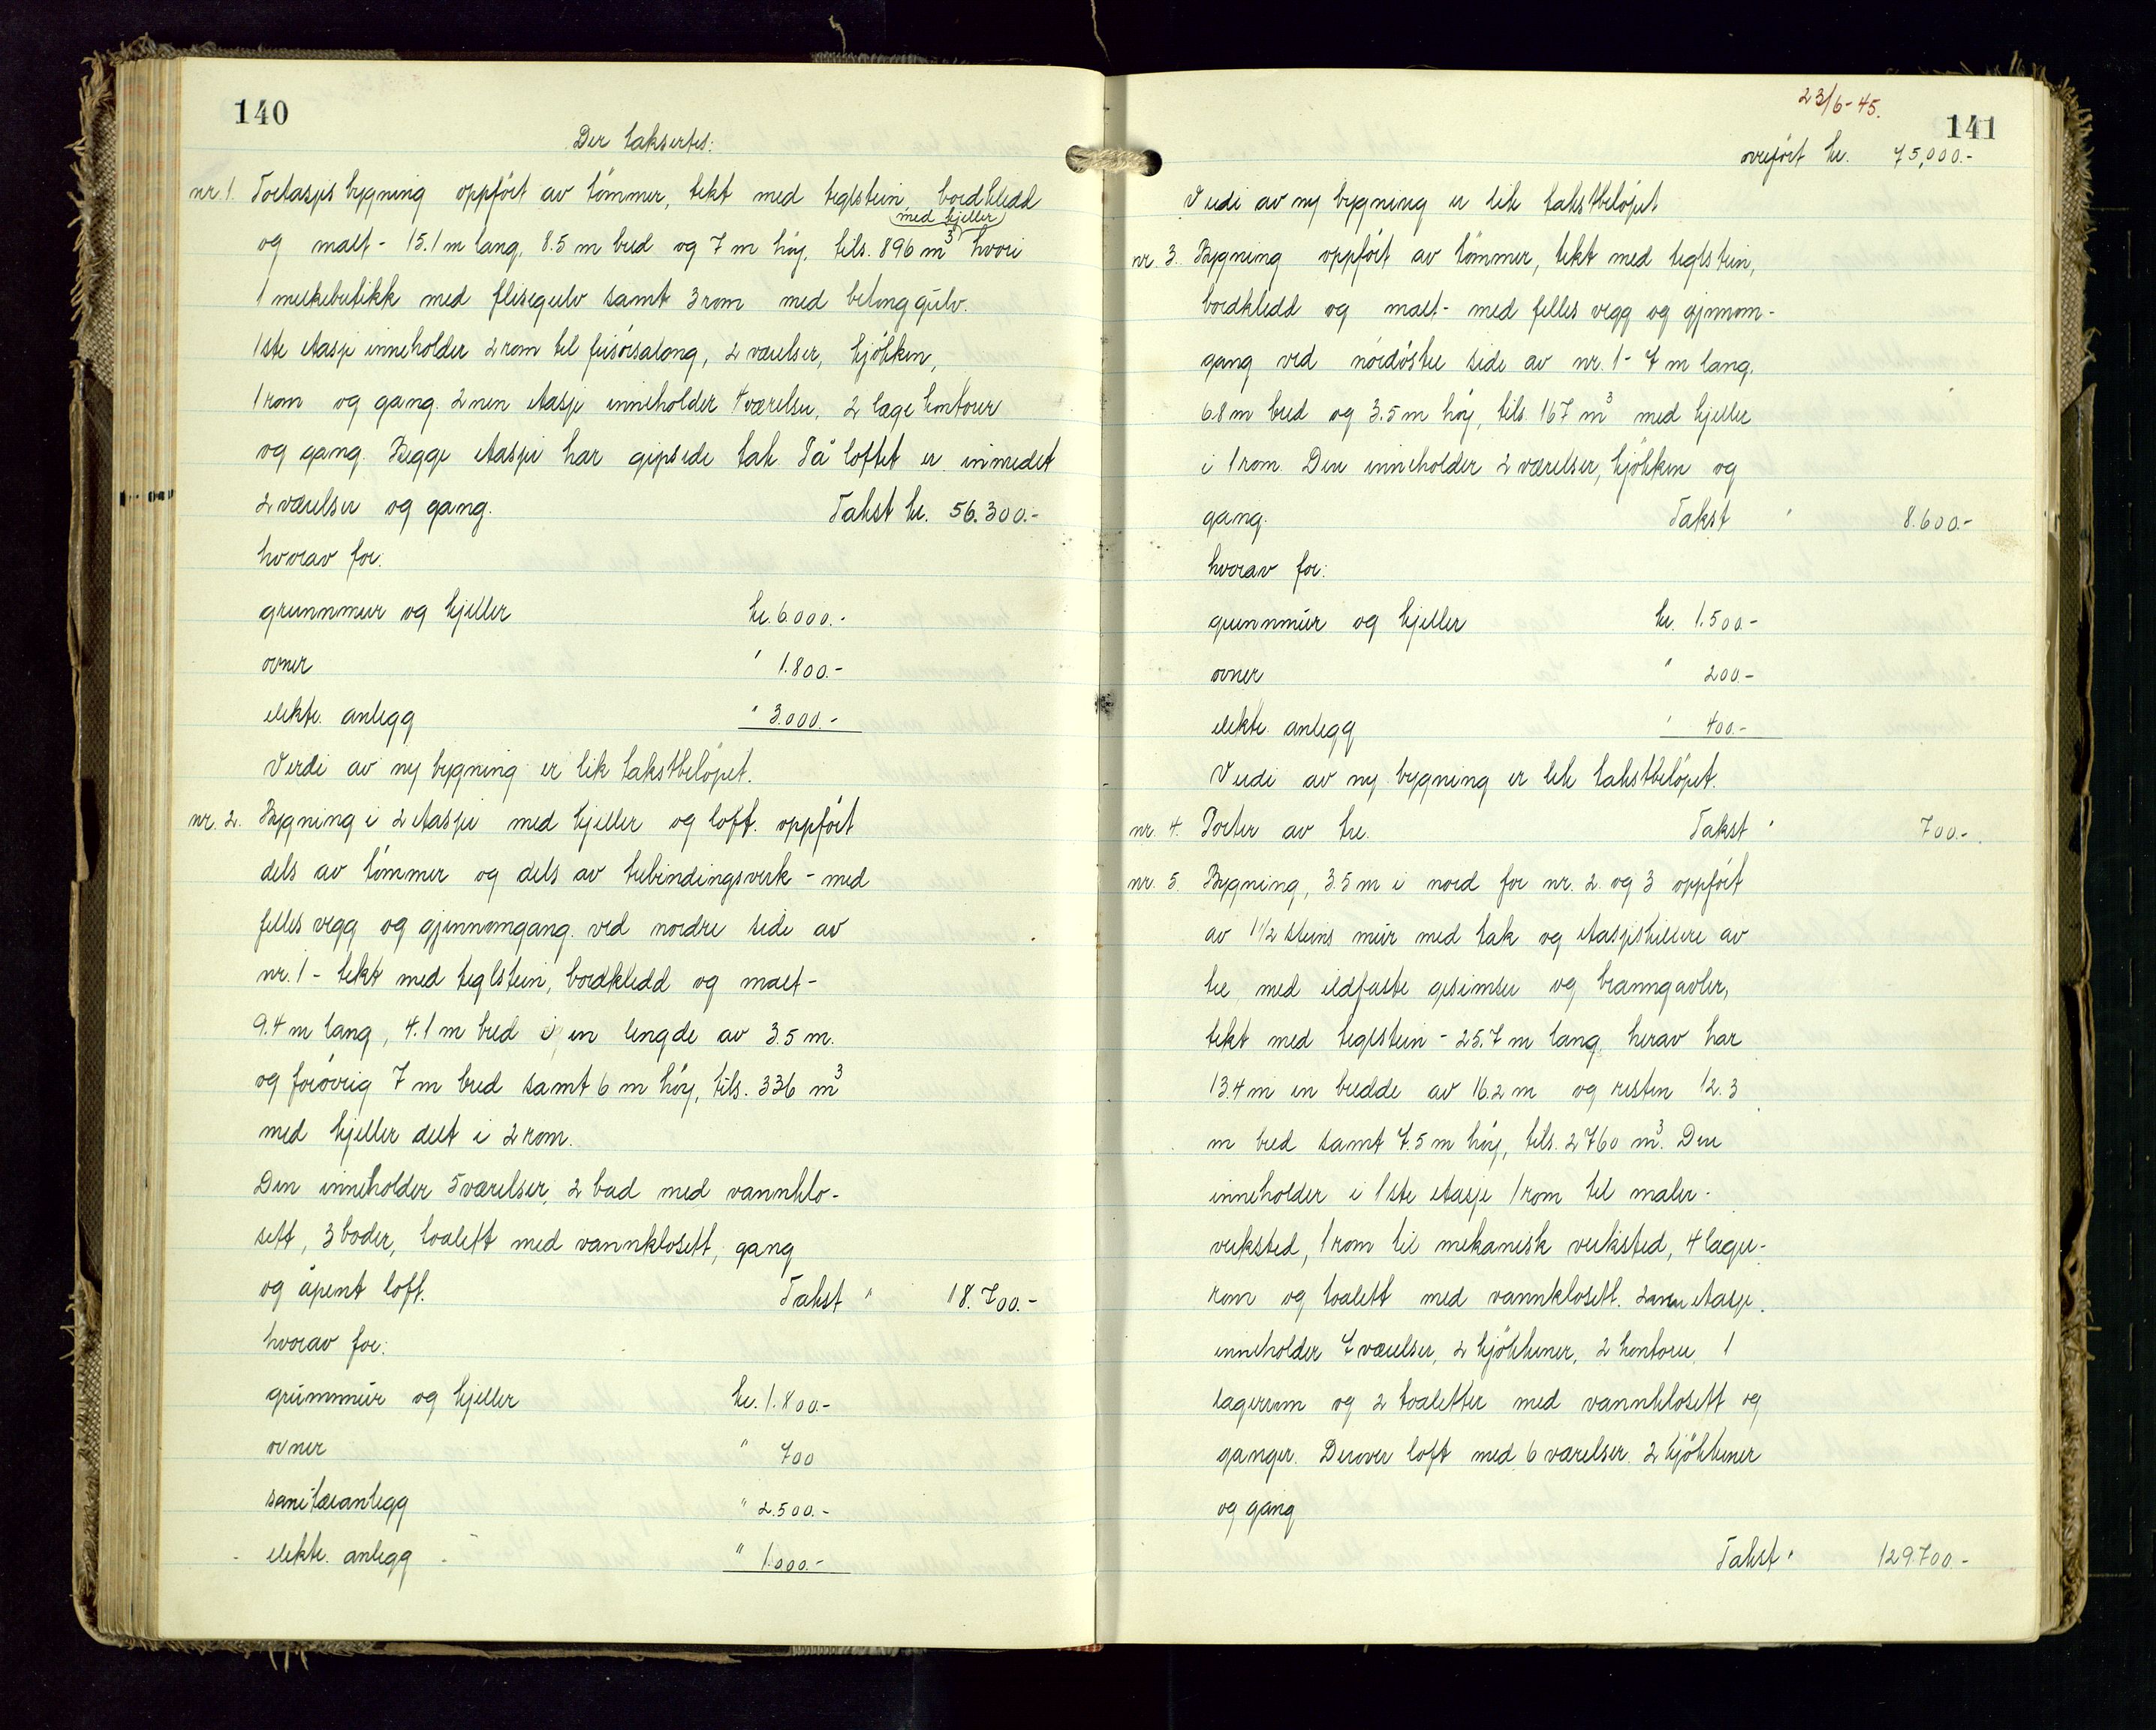 140
Der taksertes:
nr. 1. Toetasjes bygning oppført av tømmer, tekt med teglstein, bordkledd
med kjeller
og malt - 15.1 m lang, 8.5 m bred og 7 m høy, tils. 896 m³ hvori
1 melkebutikk med flisegulv samt 3 rom med betonggulv.
1ste etasje inneholder 2 rom til frisørsalong, 2 værelser, kjøkken,
1 rom og gang. 2nen etasje inneholder 4 værelser, 2 lægekontorer
og gang. Begge etasjer har gipsede tak. På loftet er innredet
2 værelser og gang. Takst kr. 56.300.-
hvorav for:
grunnmur og kjeller kr. 6.000.-
ovner " 1.800.-
elektr. anlegg " 3.000.-
Verdi av ny bygning er lik takstbeløpet.
nr. 2. Bygning i 2 etasjer med kjeller og loft. oppført
dels av tømmer og dels av trebindingsverk - med
felles vegg og gjennomgang ved nordre side av
nr. 1 - tekt med teglstein, bordkledd og malt -
9.4 m lang, 4.1 m bred i en lengde av 3.5 m.
og forøvrig 7 m bred samt 6 m høy, tils. 336 m³
med kjeller delt i 2 rom.
Den inneholder 5 værelser, 2 bad med vannklo-
sett, 3 boder, toalett med vannklosett, gang
og åpent loft. Takst " 18.700.-
hvorav for:
grunnmur og kjeller kr. 1.800.-
ovner " 700
sanitæranlegg " 2.500.-
elektr. anlegg " 1.000.-
23/6-45.
141
overført kr. 75,000.-
Verdi av ny bygning er lik takstbeløpet
nr. 3. Bygning oppført av tømmer, tekt med teglstein,
bordkledd og malt - med felles vegg og gjennom-
gang ved nordøstre side av nr. 1 - 7 m lang,
6.8 m bred og 3.5 m høy, tils. 167 m³ med kjeller
i 1 rom. Den inneholder 2 værelser, kjøkken og
gang. Takst " 8.600.-
hvorav for:
grunnmur og kjeller kr. 1.500.-
ovner " 200.-
elektr. anlegg " 400.-
Verdi av ny bygning er lik takstbeløpet.
nr. 4. Porter av tre. Takst " 700.-
nr. 5. Bygning, 3.5 m i nord for nr. 2 og 3 oppført
av 1 1/2 steins mur med tak og etasjeskillere av
tre, med ildfaste gesimser og branngavler,
tekt med teglstein - 25.7 m lang, herav har
13.4 m en bredde av 16.2 m og resten 12.3
m bred samt 7.5 m høy, tils. 2760 m³. Den
inneholder i 1ste etasje 1 rom til maler-
verksted, 1 rom til mekanisk verksted, 4 lager-
rom og toalett med vannklosett. 2nen etasje
inneholder 7 værelser, 2 kjøkkener, 2 kontorer, 1
lagerrom og 2 toaletter med vannklosett og
ganger. Derover loft med 6 værelser, 2 kjøkkener
og gang
Takst " 129.700.-